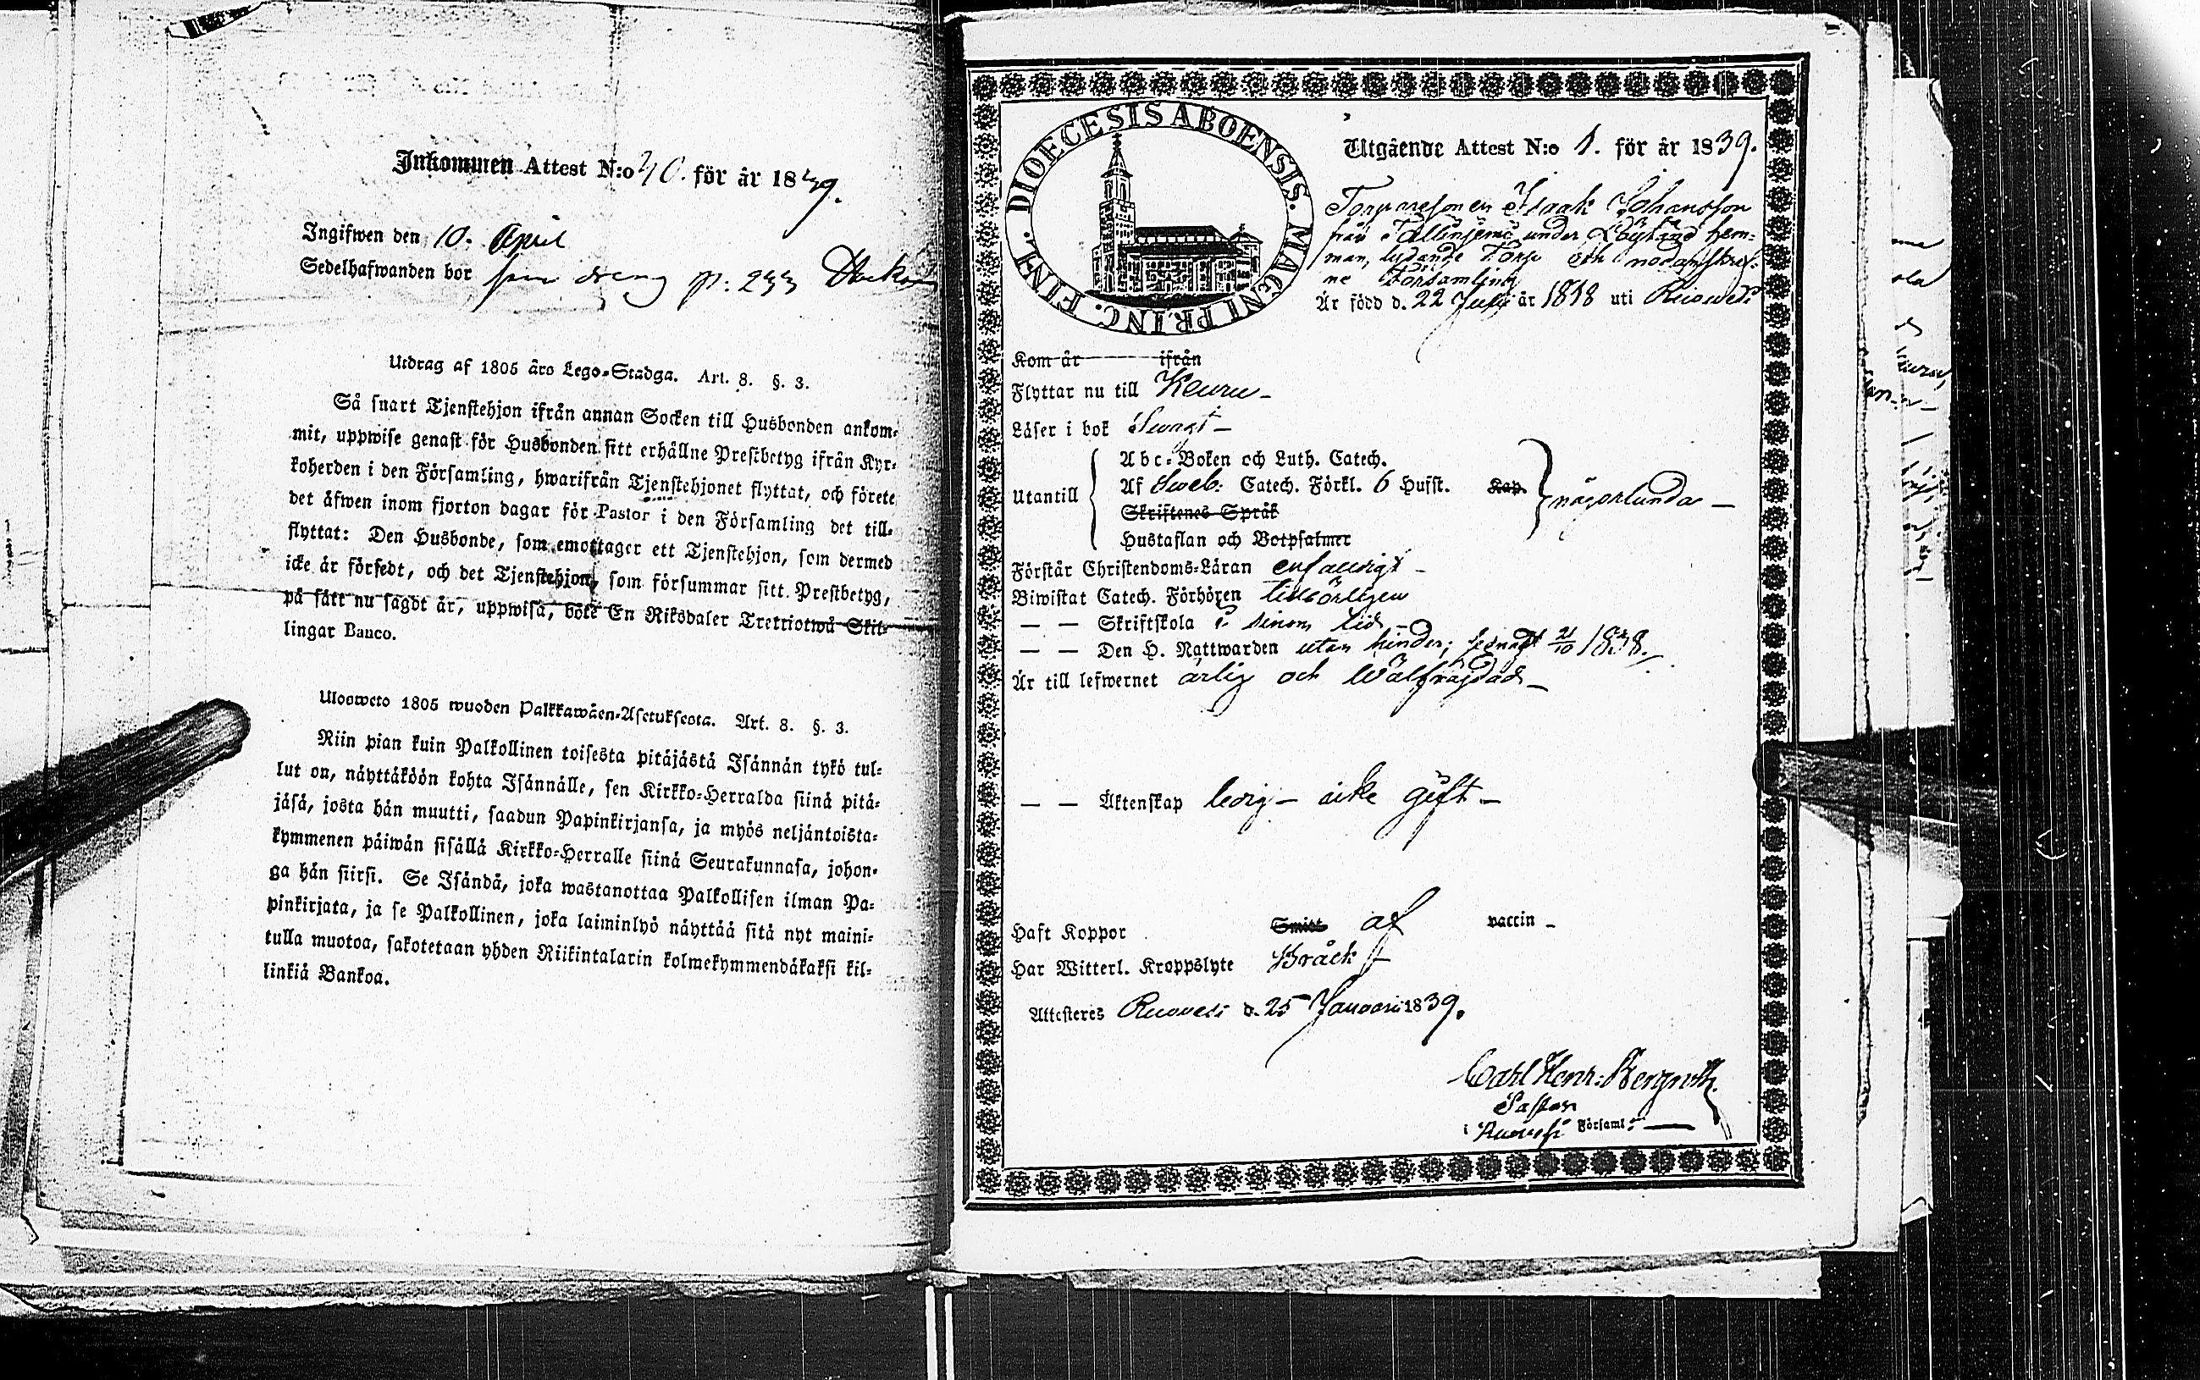 Inkommen Attest N:o 40. för år 1839.
Ingifwen den 10. April
Sedelhafwanden bor som dreng p: 233
Utdrag af 1805 års Lego-Stadga. Art. 8. §. 3.
Så snart Tjenstehjon ifrån annan Socken till Husbonden ankom-
mit, uppwise genast för Husbonden sitt erhållne Prestbetyg ifrån Kyr-
koherden i den Församling, hwarifrån Tjenstehjonet flyttat, och förete
det äfwen inom fjorton dagar för Pastor i den Församling det till-
flyttat: Den Husbonde, som emottager ett Tjenstehjon, som dermed
icke är försedt, och det Tjenstehjon, som försummar sitt Prestbetyg,
på sätt nu sagdt är, uppwisa, böte En Riksdaler Trettiotwå Skil-
lingar Banco.
Ulosweto 1805 wuoden Palkkawäen-Asetuksesta. Art. 8. §. 3.
Niin pian kuin Palkollinen toisesta pitäjästä Isännän tykö tul-
lut on, näyttäköön kohta Isännälle, sen Kirkko-Herralda siinä pitä-
jäsä, josta hän muutti, saadun Papinkirjansa, ja myös neljäntoista-
kymmenen päiwän sisällä Kirkko-Herralle siinä Seurakunnasa, johon-
ga hän siirsi. Se Isändä, joka wastanottaa Palkollisen ilman Pa-
pinkirjata, ja se Palkollinen, joka laiminlyö näyttää sitä nyt maini-
tulla muotoa, sakotetaan yhden Riikintalarin kolmekymmendäkaksi kil-
linkiä Bankoa.
DIOECESIS ABOENSIS. MAGNI PRINC. FINL.
Utgående Attest N:o 1. för år 1839.
Torparesonen Isaak Johansson
från under hem-
man, lydande Torp och nodanskref-
ne Församling
Är född d. 22 Julii år 1818 uti Ruowesi
Kom år ifrån
Flyttar nu till Keuru -
Läser i bok Swagt -
Utantill
Abc-Boken och Luth. Catech.
Af Sweb: Catech. Förkl. 6 Hufst. Kap.
Skriftenes Språk
Hustaflan och Botpsalmer
någorlunda -
Förstår Christendoms-Läran enfaldigt -
Biwistat Catech. Förhören tidsörligen
- - Skriftskola i sinom tid -
- - Den H. Nattwarden utan hinder; sednast 21/10 1838.
Är till lefwernet ärlig och Wälfrägdad -
- - Äktenskap ledig - icke gift -
Haft Koppor Smitt af vaccin -
Har Witterl. Kroppslyte Bråck
Attesteres Ruovesi d. 25 Januari 1839.
Carl Henr: Bergroth.
Pastor
i Ruovesi Församl: